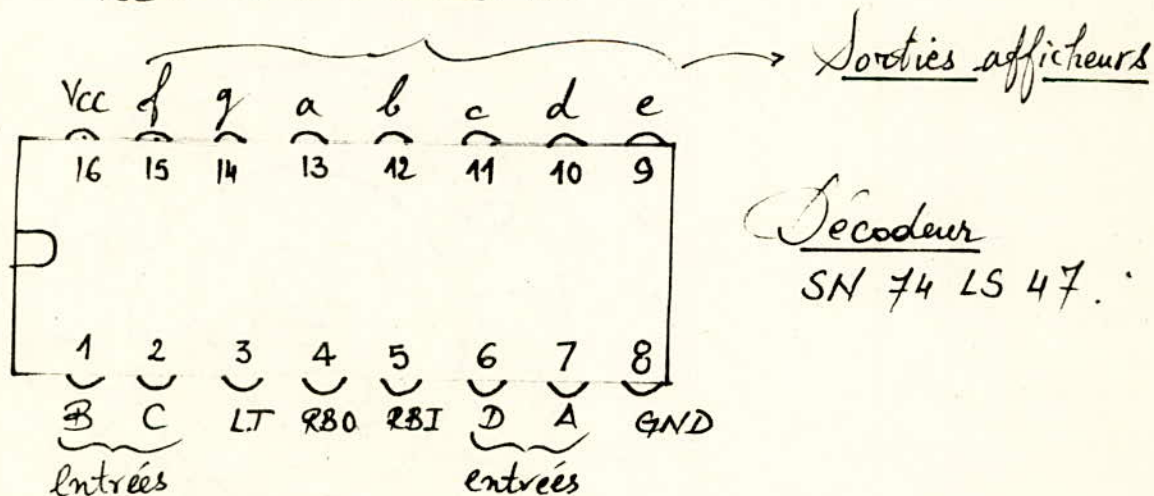 Sorties afficheurs
Vcc f g a b c d e
16 15 14 13 12 11 10 9
Décodeur
SN 74 LS 47.
1 2 3 4 5 6 7 8
B C LT RBO RBI D A GND
Entrées entrées